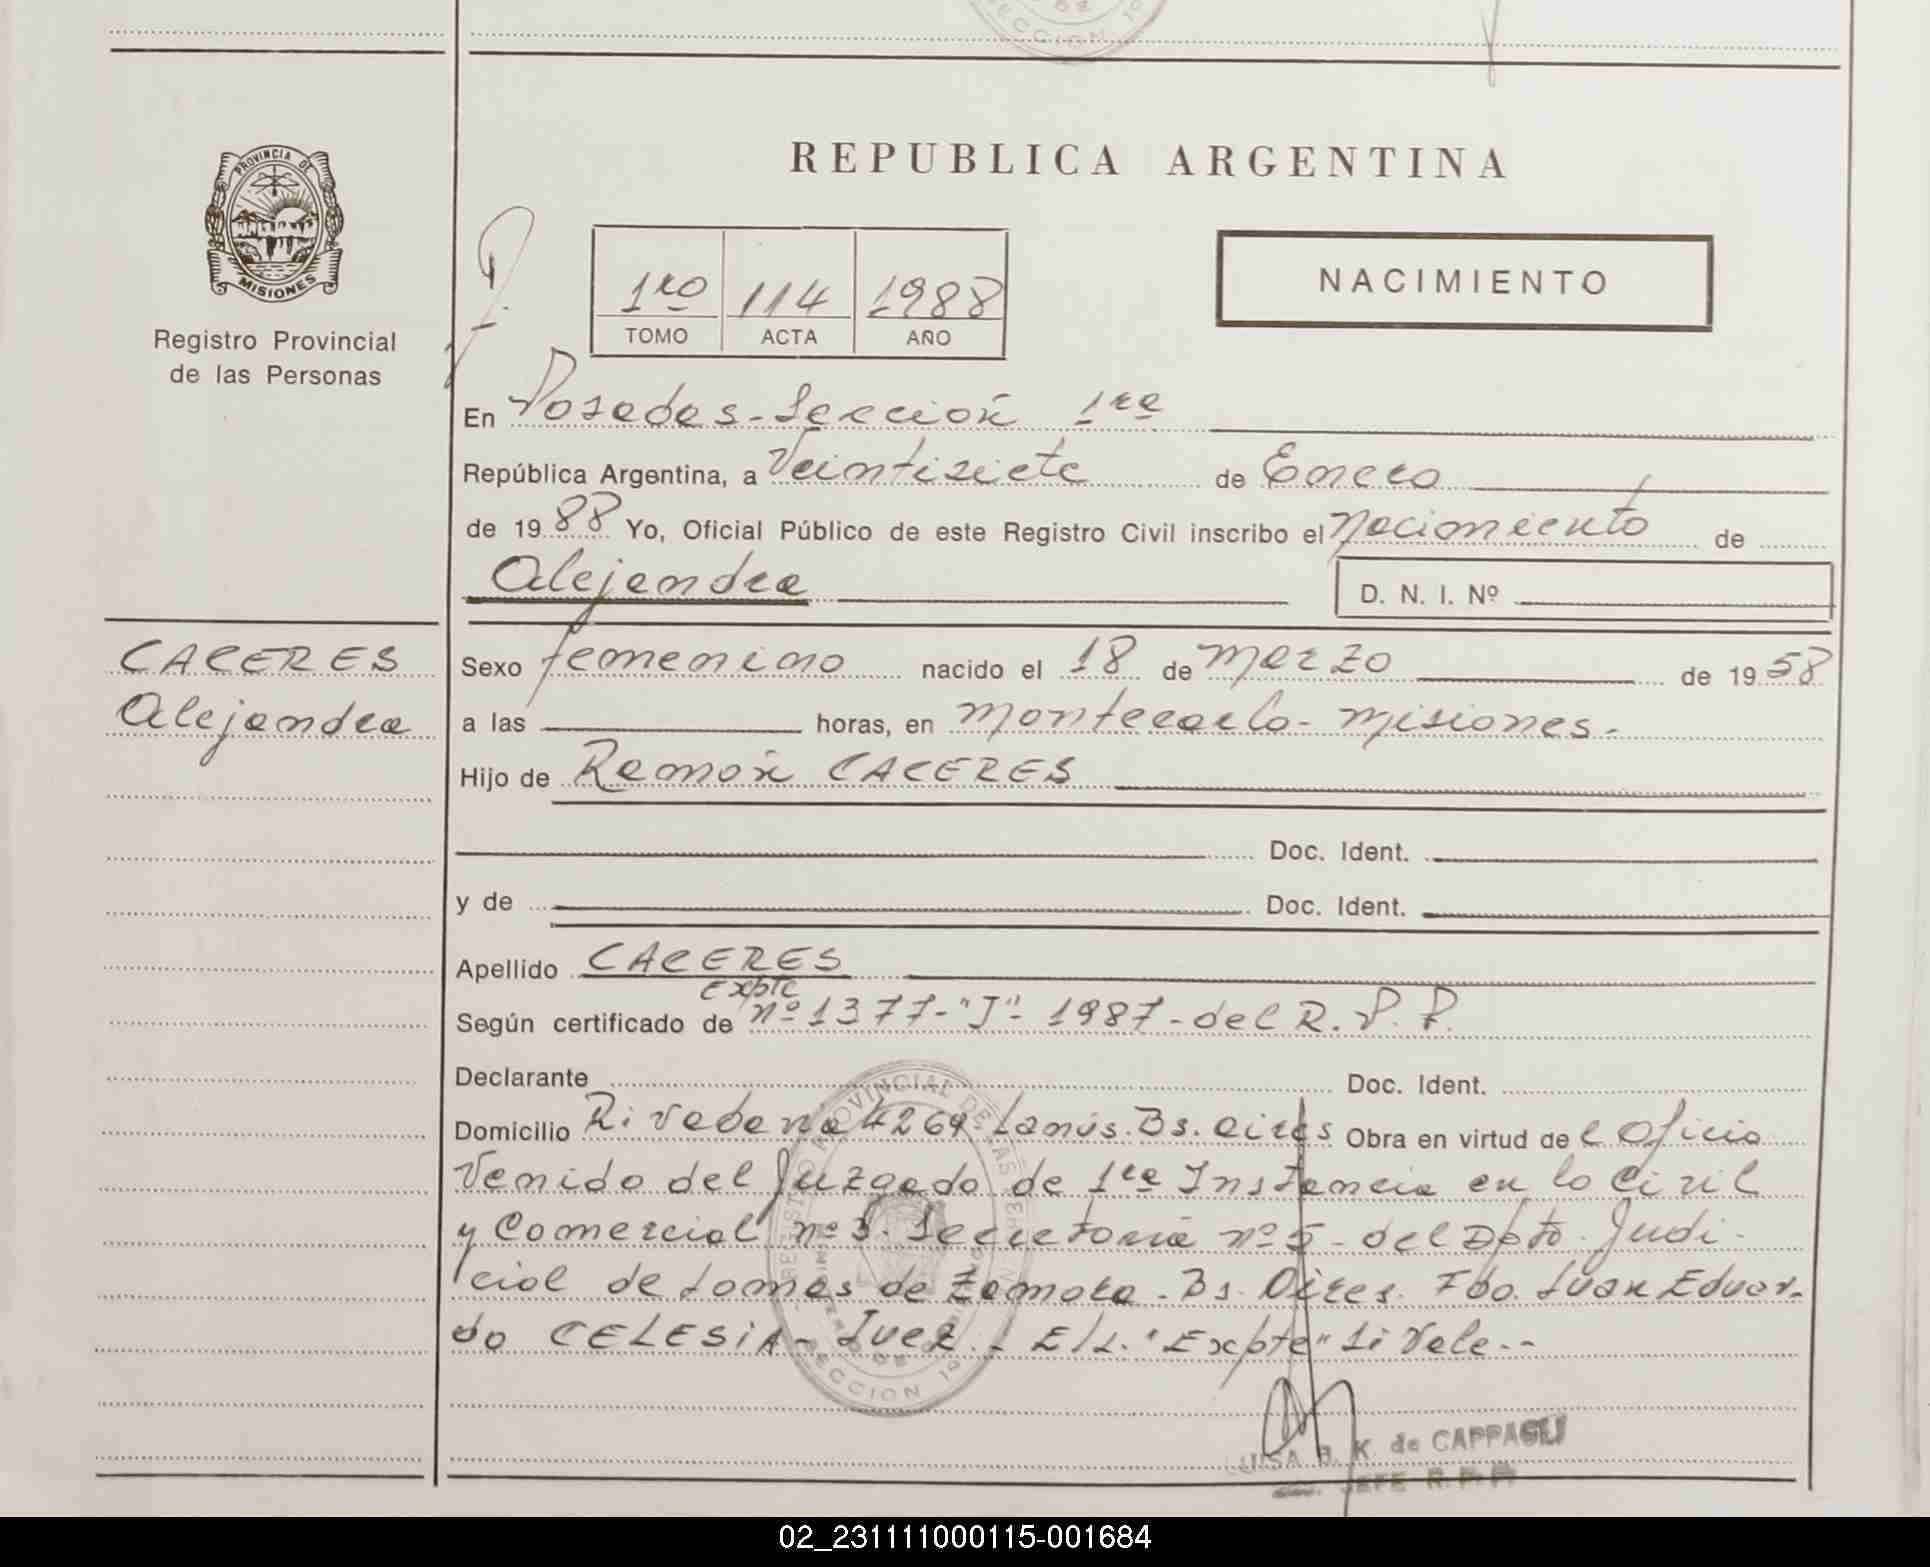 REPUBLICA ARGENTINA
PROVINCIA DE
MISIONES
Registro Provincial
de las Personas
1ro 114 1988
TOMO ACTA AÑO
NACIMIENTO
En Posadas - Sección 1ra
República Argentina, a Veintisiete de Enero
de 1988 Yo, Oficial Público de este Registro Civil inscribo el Nacimiento de
Alejandra
D. N. I. Nº
CACERES
Alejandra
Sexo femenino nacido el 18 de Marzo de 1958
a las horas, en Montecarlo - Misiones.-
Hijo de Ramón CACERES
Doc. Ident.
y de Doc. Ident.
Apellido CACERES
Expte
Según certificado de nº 1377-"J"- 1987 - del R. P. P.
Declarante Doc. Ident.
Domicilio Rivadavia 4269 - Lanús. Bs. Aires Obra en virtud del Oficio
Venido del Juzgado de 1ra Instancia en lo Civil
y Comercial nº 3. Secretaría nº 5 - del Dpto. Judi-
cial de Lomas de Zamora - Bs. Aires. Fdo. Juan Eduar-
do CELESIA - Juez.- E/L. "Expte" Si Vale.--
LUISA B. K. de CAPPAGLI
JEFE R. P. P.
02_231111000115-001684